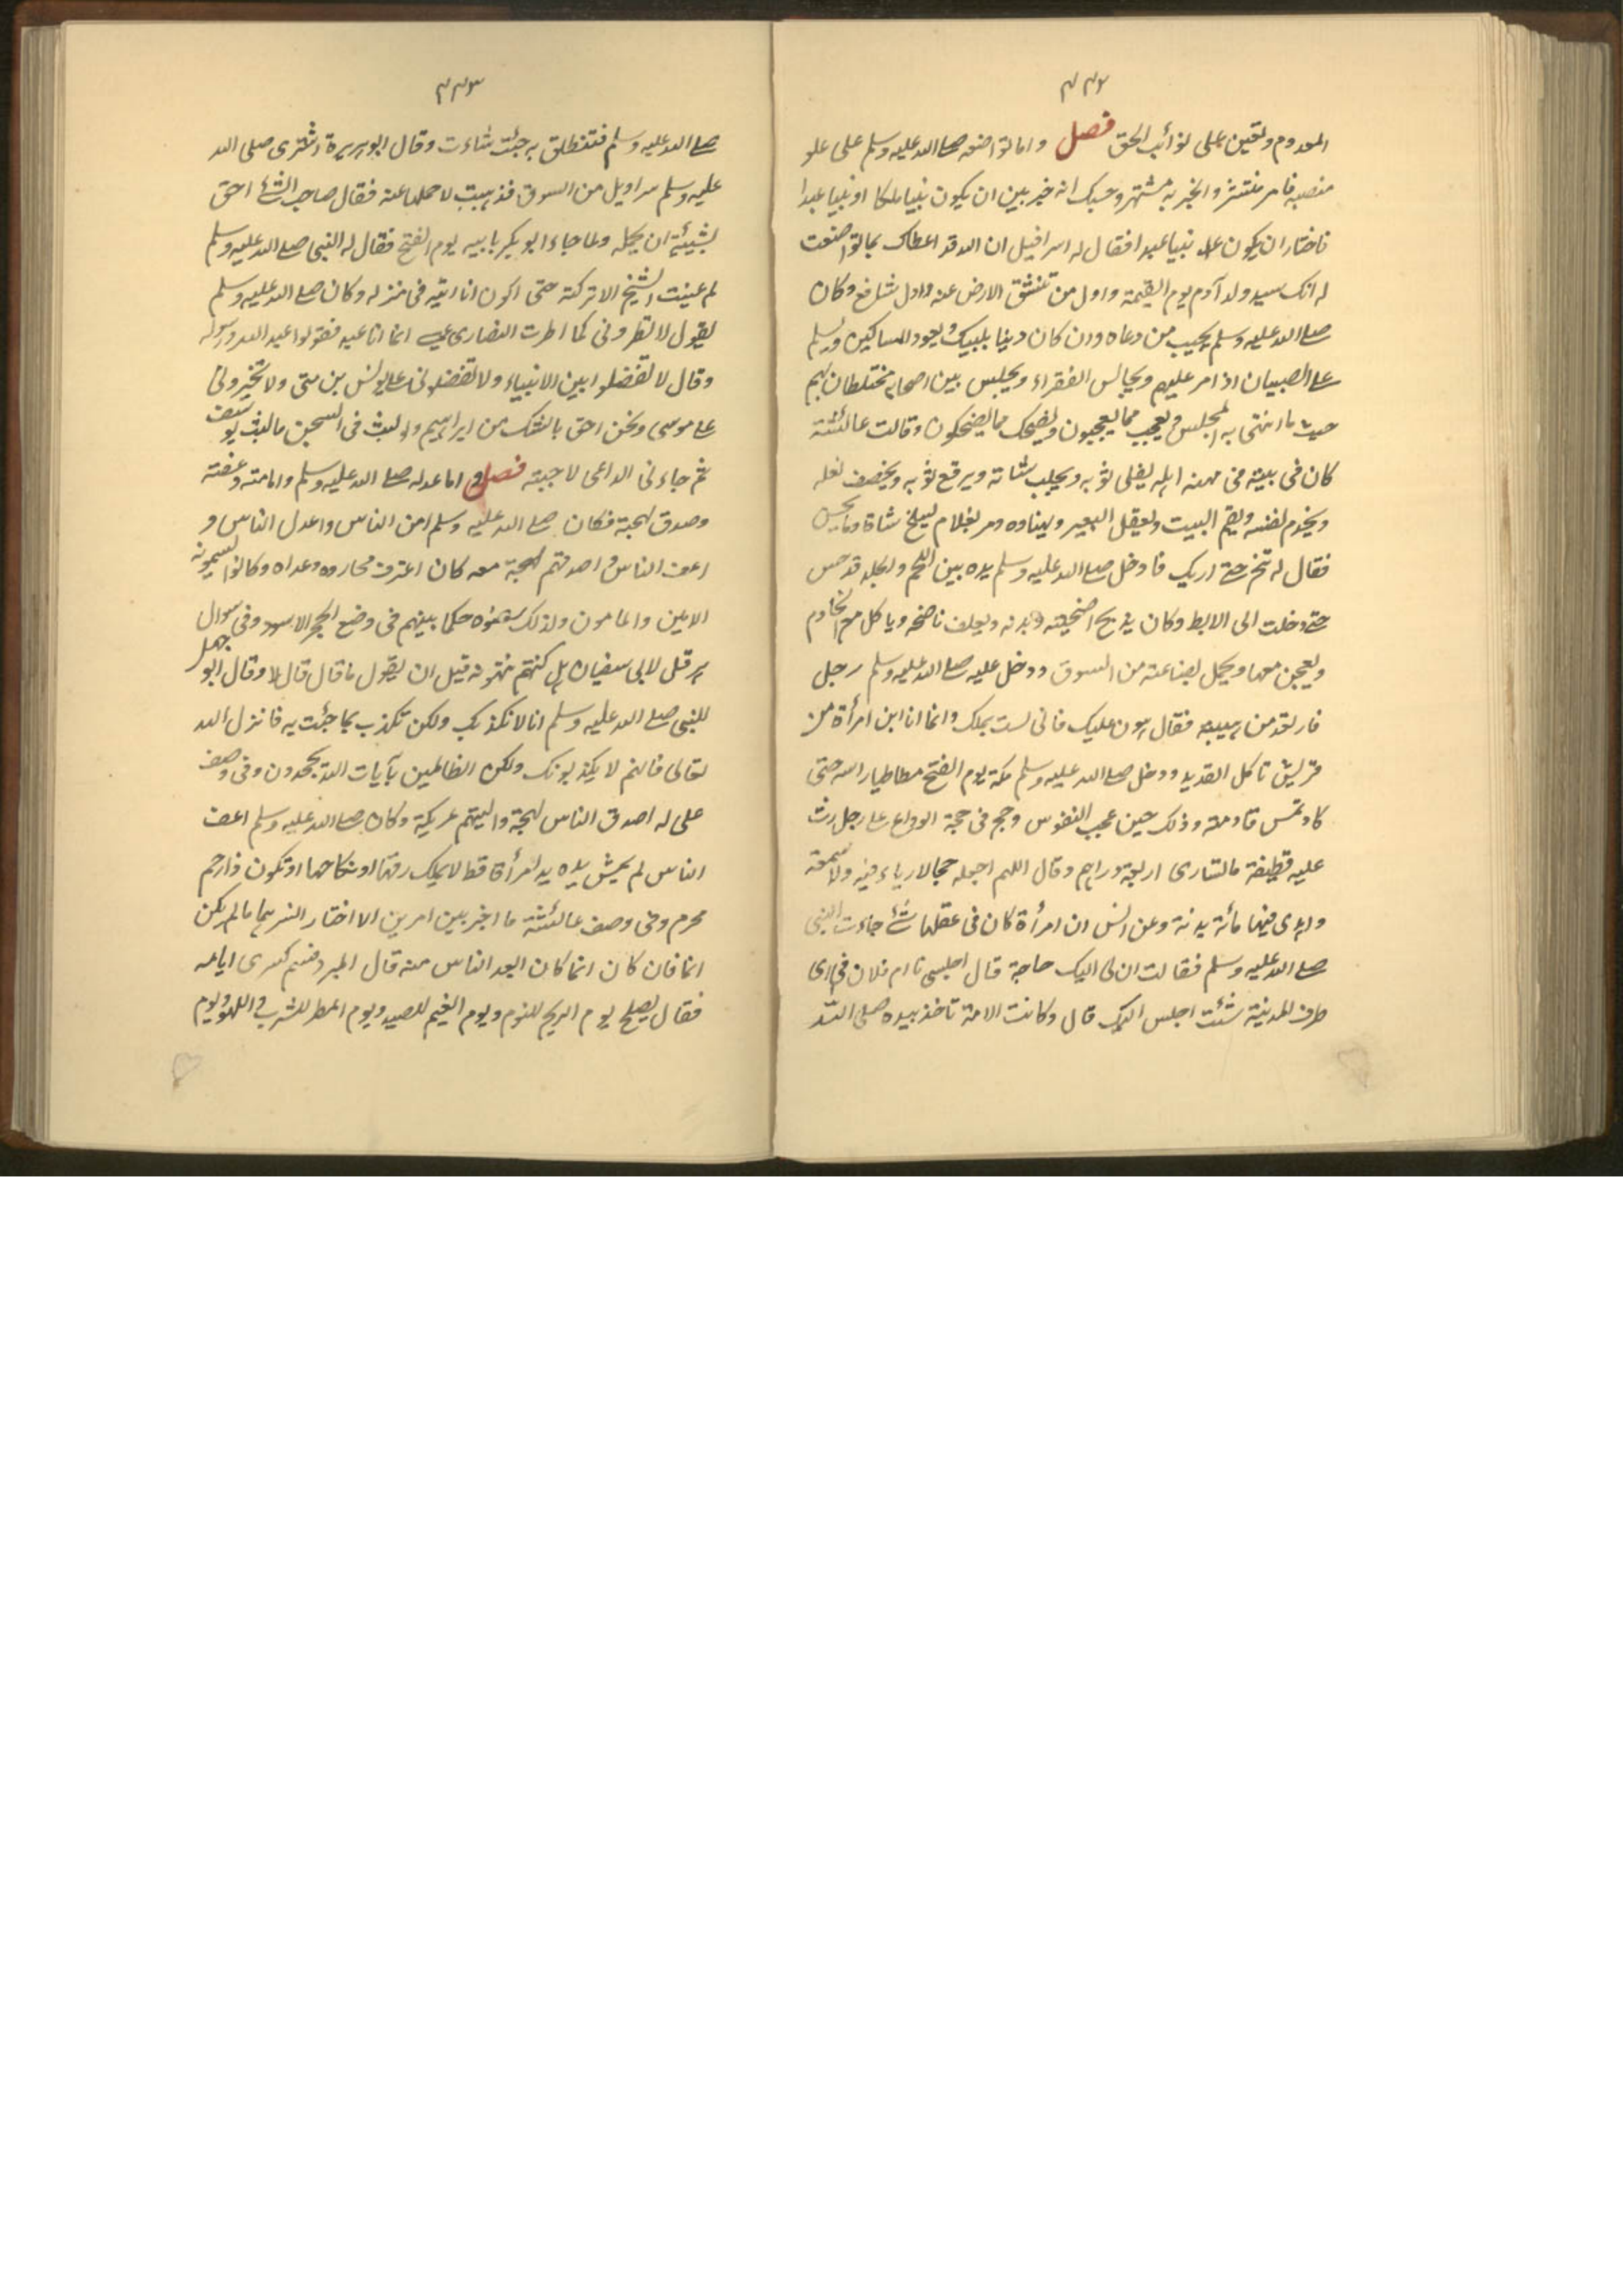 ٢٢٢
المعدوم وتعين على نوائب الحق فصل واما تواضعه صلے الله عليه وسلم على علو
منصبه فامر منتشر والخبر به مشتهر وحسبك انه خير بين ان يكون نبيا ملكا او نبيا عبدا
فاختار ان يكون نبيا عبدا فقال له اسرافيل ان الله قد اعطاك بما تواضعت
له انك سيد ولد آدم يوم القيمة واول من تنشق الارض عنه واول شافع وكان
صلے الله عليه وسلم يجيب من دعاه وان كان دينا بلبيك ويعود المساكين ويسلم
علے الصبيان اذا مر عليهم ويجالس الفقراء ويجلس بين اصحابه مختلطان بهم
حيث ما انتهى به المجلس ويعجب مما يعجبون ويضحك مما يضحكون وقالت عائشة
كان فى بيته فى مهنه اهله يفلى ثوبه ويحلب شاته ويرقع ثوبه ويخصف نعله
ويخدم لنفسه ويقم البيت ويعقل البعير ويهناوه ومر بغلام ليسلخ شاة وما يحسن
فقال له تنح حتے اريك فادخل صلے الله عليه وسلم يده بين اللحم والجلد فدحس
حتے دخلت الى الابط وكان يذبح اضحيته وبدنه ويعلف ناضحه وياكل مع الخادم
ويعجن معها ويحمل بضاعته من السوق ودخل عليه صلے الله عليه وسلم رجل
فارتعد من هيبته فقال هون عليك فانى لست بملك وانما انا ابن امرأة من
قريش تاكل القديد ودخل صلے الله عليه وسلم مكة يوم الفتح مطاطيا راسه حتى
كاد تمس قادمته وذلك حين عجب النفوس وحج فى حجة الوداع علے رجل رث
عليه قطيفة ما تساوى اربعة دراهم وقال اللهم اجعله حجا لا رياء فيه ولا سمعة
واهدى فيها مائة بدنة وعن انس ان امرأة كان فى عقلها شئ جاءت النبى
صلے الله عليه وسلم فقالت ان لى اليك حاجة قال اجلسى يا ام فلان فى اى
طرف المدنية شئت اجلس اليك قال وكانت الامة تاخذ بيده صلى الله
٢٢٣
صلے الله عليه وسلم فتنطلق به حيث شاءت وقال ابوهريرة اشترى صلى الله
عليه وسلم سراويل من السوق فذهبت لاحملها عنه فقال صاحب الشئ احق
بشيئه ان يحمله ولما جاء ابو بكر بابيه يوم الفتح فقال له النبى صلے الله عليه وسلم
لم عنيت الشيخ الا تركته حتى اكون انا اتيه فى منزله وكان صلے الله عليه وسلم
يقول لا تطرونى كما اطرت النصارى عيسے انما انا عبد فقولوا عبد الله ورسوله
وقال لا تفضلوا بين الانبياء ولا تفضلونى علے يونس بن متى ولا تخيرونى
علے موسى ونحن احق بالشك من ابراهيم ولو لبث فى السجن ما لبث يوسف
ثم جاءنى الداعى لاجبته فصل واما عدله صلے الله عليه وسلم وامانته وعفته
وصدق لهجته فكان صلے الله عليه وسلم امن الناس واعدل الناس و
اعف الناس واصدقهم لهجة معه كان اعترف محاروه وعداه وكانوا يسمونه
الامين والمامون ولذلك سموه حكما بينهم فى وضع الحجر الاسود وفى سوال
هرقل لابى سفيان هل كنتم تتهمونه قبل ان يقول ما قال قال لا وقال ابو جهل
للنبى صلے الله عليه وسلم انا لا نكذبك ولكن نكذب بما جئت به فانزل الله
تعالى فانهم لا يكذبونك ولكن الظالمين بآيات الله يجحدون وفى وصف
على له اصدق الناس لهجة والينهم عريكة وكان صلے الله عليه وسلم اعف
الناس لم يمش يده يد امرأة قط لا يملك رقها او نكاحها او تكون ذا رحم
محرم وفى وصف عائشة ما اخير بين امرين الا اختار ايسرهما ما لم يكن
اثما فان كان اثما كان ابعد الناس منه قال المبرد قسم كسرى ايامه
فقال يصلح يوم الريح للنوم ويوم الغيم للصيد ويوم المطر للشرب واللهو ويوم